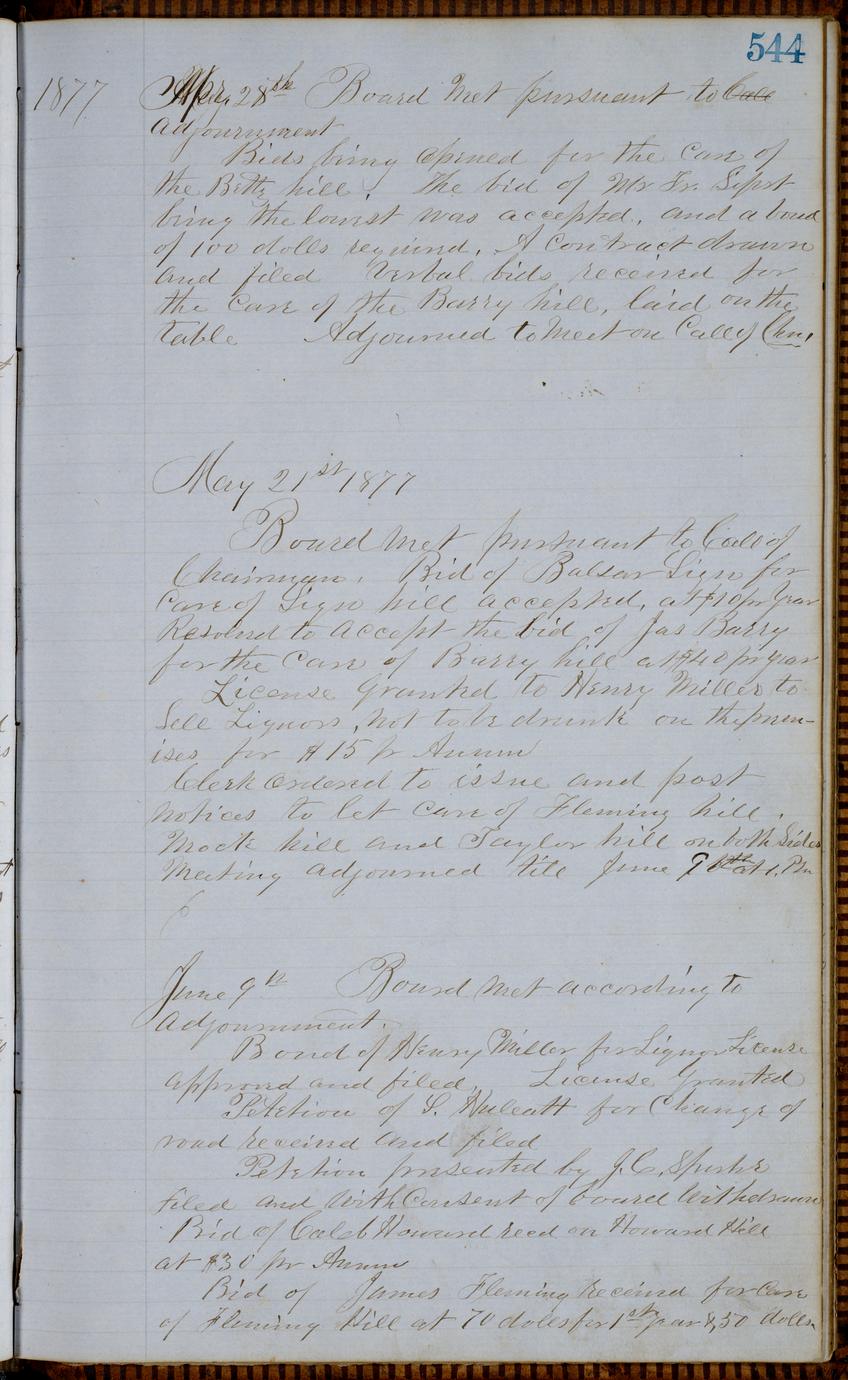 544
1877 Apr 28th Board Met pursuant to Call
adjournment
Bids being opened for the Care of
the Betty hill. The bid of Mr Fr. Sipst
being the lowest was accepted, and a bond
of 100 dolls required, A Contract drawn
and filed Verbal bids received for
the Care of the Barry hill, laid on the
table Adjourned to Meet on Call of Chn,
May 21st 1877
Board Met pursuant to Call of
Chairman. Bid of Balsar Sign for
Care of Sign hill accepted, at $10 pr Year
Resolved to accept the bid of Jas Barry
for the Care of Barry hill at $40 pr year
License Granted to Henry Miller to
Sell Liquors, not to be drunk on the prem-
ises for $15 pr Annum
Clerk Ordered to issue and post
notices to let Care of Fleming hill,
Mock hill and Taylor hill on both Sides
Meeting adjourned till June 9th at 1. Pm
June 9th Board Met according to
adjournment.
Bond of Henry Miller for Liquor License
approved and filed, License Granted
Petetion of S. Huleatt for Change of
road received and filed
Petetion presented by J.C. Sparks
filed and With Consent of board Withdrawn
Bid of Caleb Howard recd on Howard Hill
at $30 pr Annum
Bid of James Fleming Received for Care
of Fleming Hill at 70 dolls for 1st year &, 50 dolls,